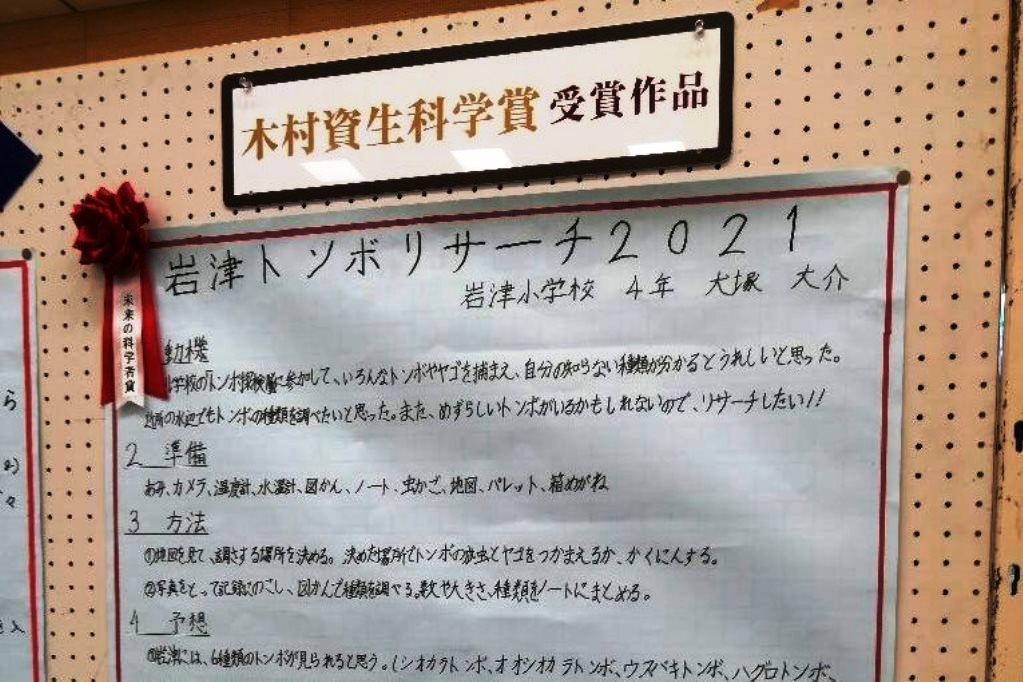 木村資生科学賞 受賞作品
未来の科学者賞
岩津トンボリサーチ2021
岩津小学校 4年 大塚 大介
動機
小学校の「トンボ探検隊」に参加して、いろんなトンボやヤゴを捕まえ、自分の知らない種類が分かるとうれしいと思った。
近所の水辺でもトンボの種類を調べたいと思った。また、めずらしいトンボがいるかもしれないので、リサーチしたい!!
2 準備
あみ、カメラ、温度計、水温計、図かん、ノート、虫かご、地図、パレット、箱めがね
3 方法
①地図を見て、調さする場所を決める。決めた場所でトンボの成虫とヤゴをつかまえるか、かくにんする。
②写真をとって記録にのこし、図かんで種類を調べる。数や大きさ、種類をノートにまとめる。
4 予想
①岩津には、6種類のトンボが見られると思う。(シオカラトンボ、オオシオカラトンボ、ウスバキトンボ、ハグロトンボ、
ら